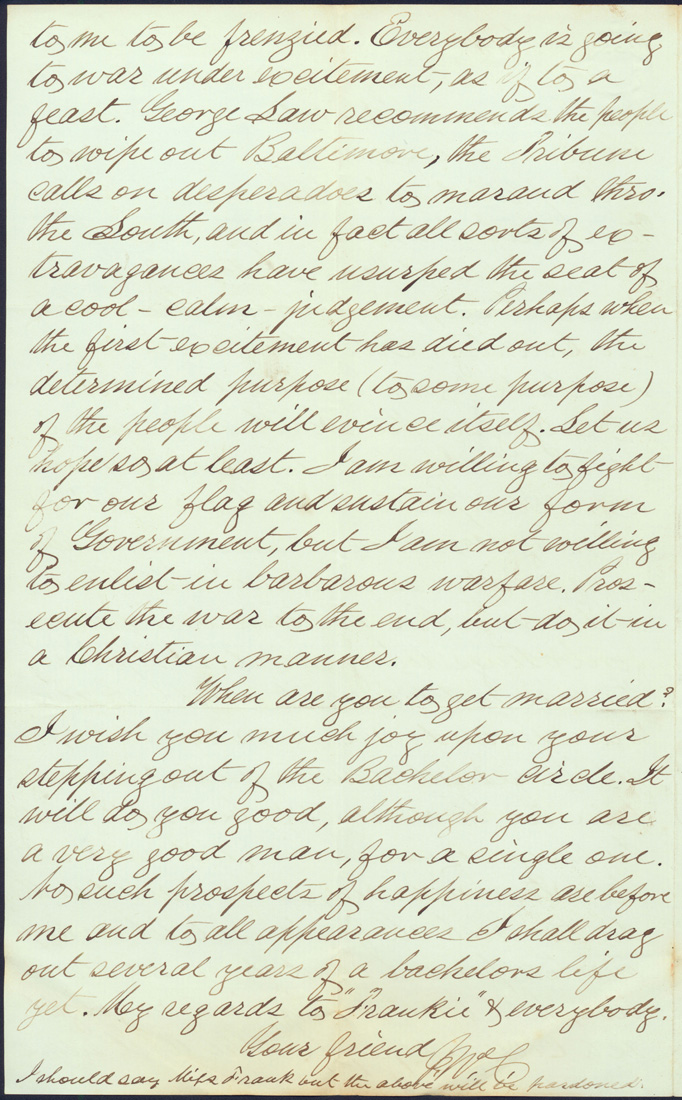 to me to be frenzied. Everybody is going
to war under excitement, as if to a
feast. George Law recommends the people
to wipe out Baltimore, the Tribune
calls on desperadoes to maraud thro.
the South, and in fact all sorts of ex-
travagances have usurped the seat of
a cool - calm - judgement. Perhaps when
the first excitement has died out, the
determined purpose (to some purpose)
of the people will evince itself. Let us
hope so, at least. I am willing to fight
for our flag and sustain our form
of Government, but I am not willing
to enlist in barbarous warfare. Pros-
ecute the war to the end, but do it in
a Christian manner.
When are you to get married?
I wish you much joy upon your
stepping out of the Bachelor circle. It
will do you good, although you are
a very good man, for a single one.
No such prospects of happiness are before
me and to all appearances I shall drag
out several years of a bachelors life
yet. My regards to "Frankie" & everybody.
Your friend
I should say Miss Frank but the above will be pardoned.